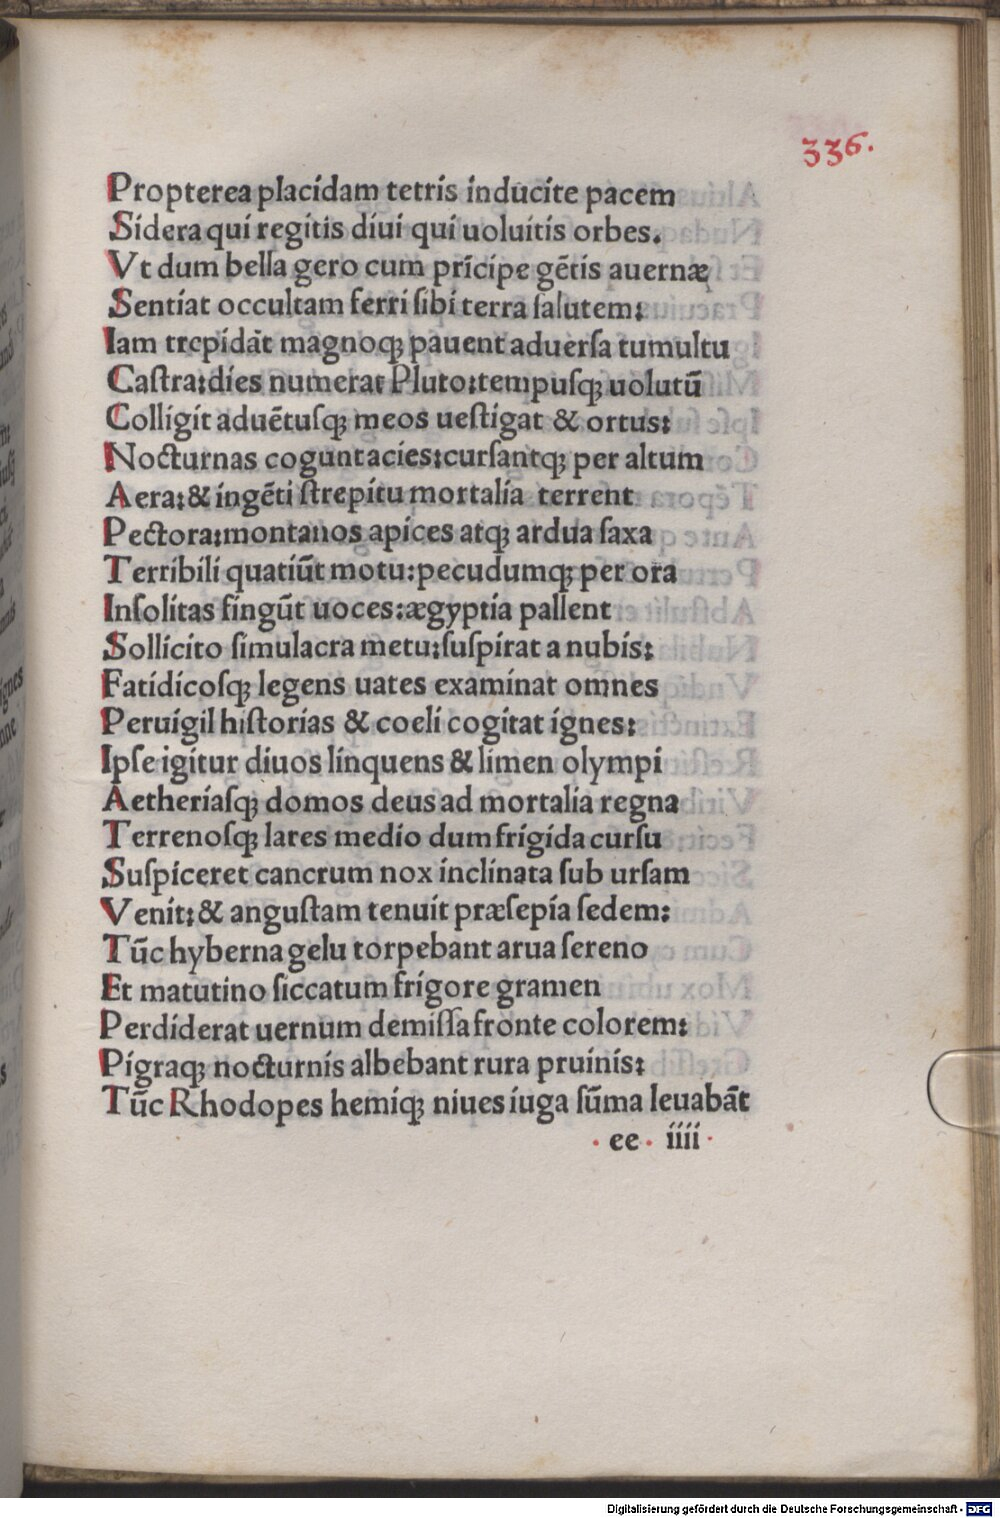 336.
Propterea placidam tetris inducite pacem
Sidera qui regitis diui qui uoluitis orbes.
Vt dum bella gero cum prīcipe gētis auernæ
Sentiat occultam ferri ſibi terra ſalutem:
Iam trepidāt magnoqꝫ pauent aduerſa tumultu
Caſtra:dies numerat Pluto:tempuſqꝫ uolutū
Colligit aduētuſqꝫ meos ueſtigat & ortus:
Nocturnas cogunt acies:curſantqꝫ per altum
Aera:& ingēti ſtrepitu mortalia terrent
Pectora:montanos apices atqꝫ ardua ſaxa
Terribili quatiūt motu:pecudumqꝫ per ora
Inſolitas fingūt uoces:ægyptia pallent
Sollicito ſimulacra metu:ſuſpirat a nubis:
Fatidicoſqꝫ legens uates examinat omnes
Peruigil hiſtorias & coeli cogitat ignes:
Ipſe igitur diuos linquens & limen olympi
Aetheriaſqꝫ domos deus ad mortalia regna
Terrenoſqꝫ lares medio dum frigida curſu
Suſpiceret cancrum nox inclinata ſub urſam
Venit:& anguſtam tenuit præſepia ſedem:
Tūc hyberna gelu torpebant arua ſereno
Et matutino ſiccatum frigore gramen
Perdiderat uernum demiſſa fronte colorem:
Pigraqꝫ nocturnis albebant rura pruinis:
Tūc Rhodopes hemiqꝫ niues iuga ſūma leuabāt
· ee · iiii ·
Digitalisierung gefördert durch die Deutsche Forschungsgemeinschaft - DFG